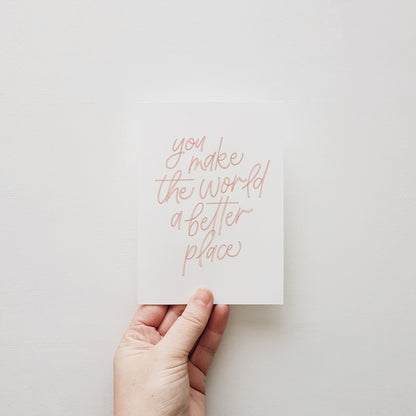 you
make
the world
a better
place